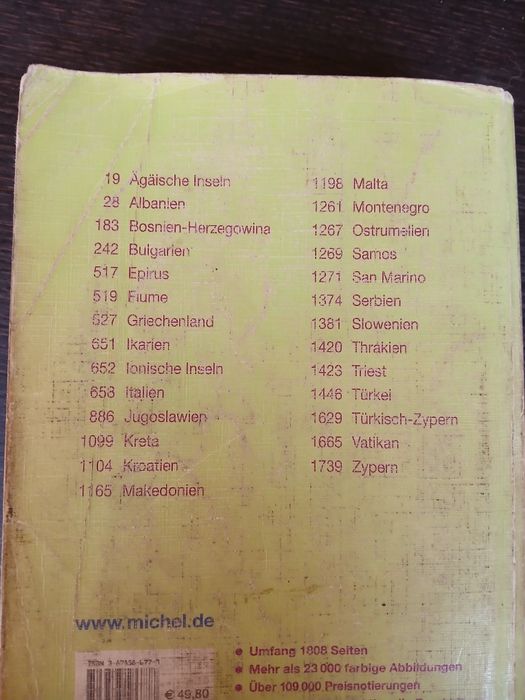 19 Ägäische Inseln
28 Albanien
183 Bosnien-Herzegowina
242 Bulgarien
517 Epirus
519 Fiume
527 Griechenland
651 Ikarien
652 Ionische Inseln
658 Italien
886 Jugoslawien
1099 Kreta
1104 Kroatien
1165 Makedonien
1198 Malta
1261 Montenegro
1267 Ostrumelien
1269 Samos
1271 San Marino
1374 Serbien
1381 Slowenien
1420 Thrakien
1423 Triest
1446 Türkei
1629 Türkisch-Zypern
1665 Vatikan
1739 Zypern
www.michel.de
ISBN
€ 49,80
• Umfang 1808 Seiten
• Mehr als 23 000 farbige Abbildungen
• Über 109 000 Preisnotierungen